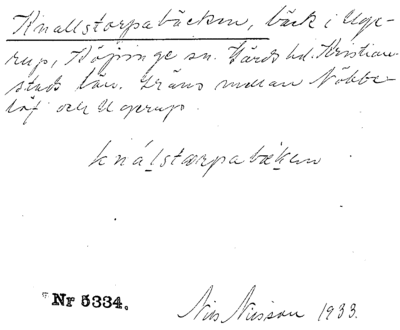 Knallstorpabäcken, bäck i Uge-
rup, Köpinge sn. Gärds hd. Kristian-
stads län. Gräns mellan Nöbbe-
löf och Ugerup.
knálstorpabäken
Nr 5334.
Nils Nilsson 1933.